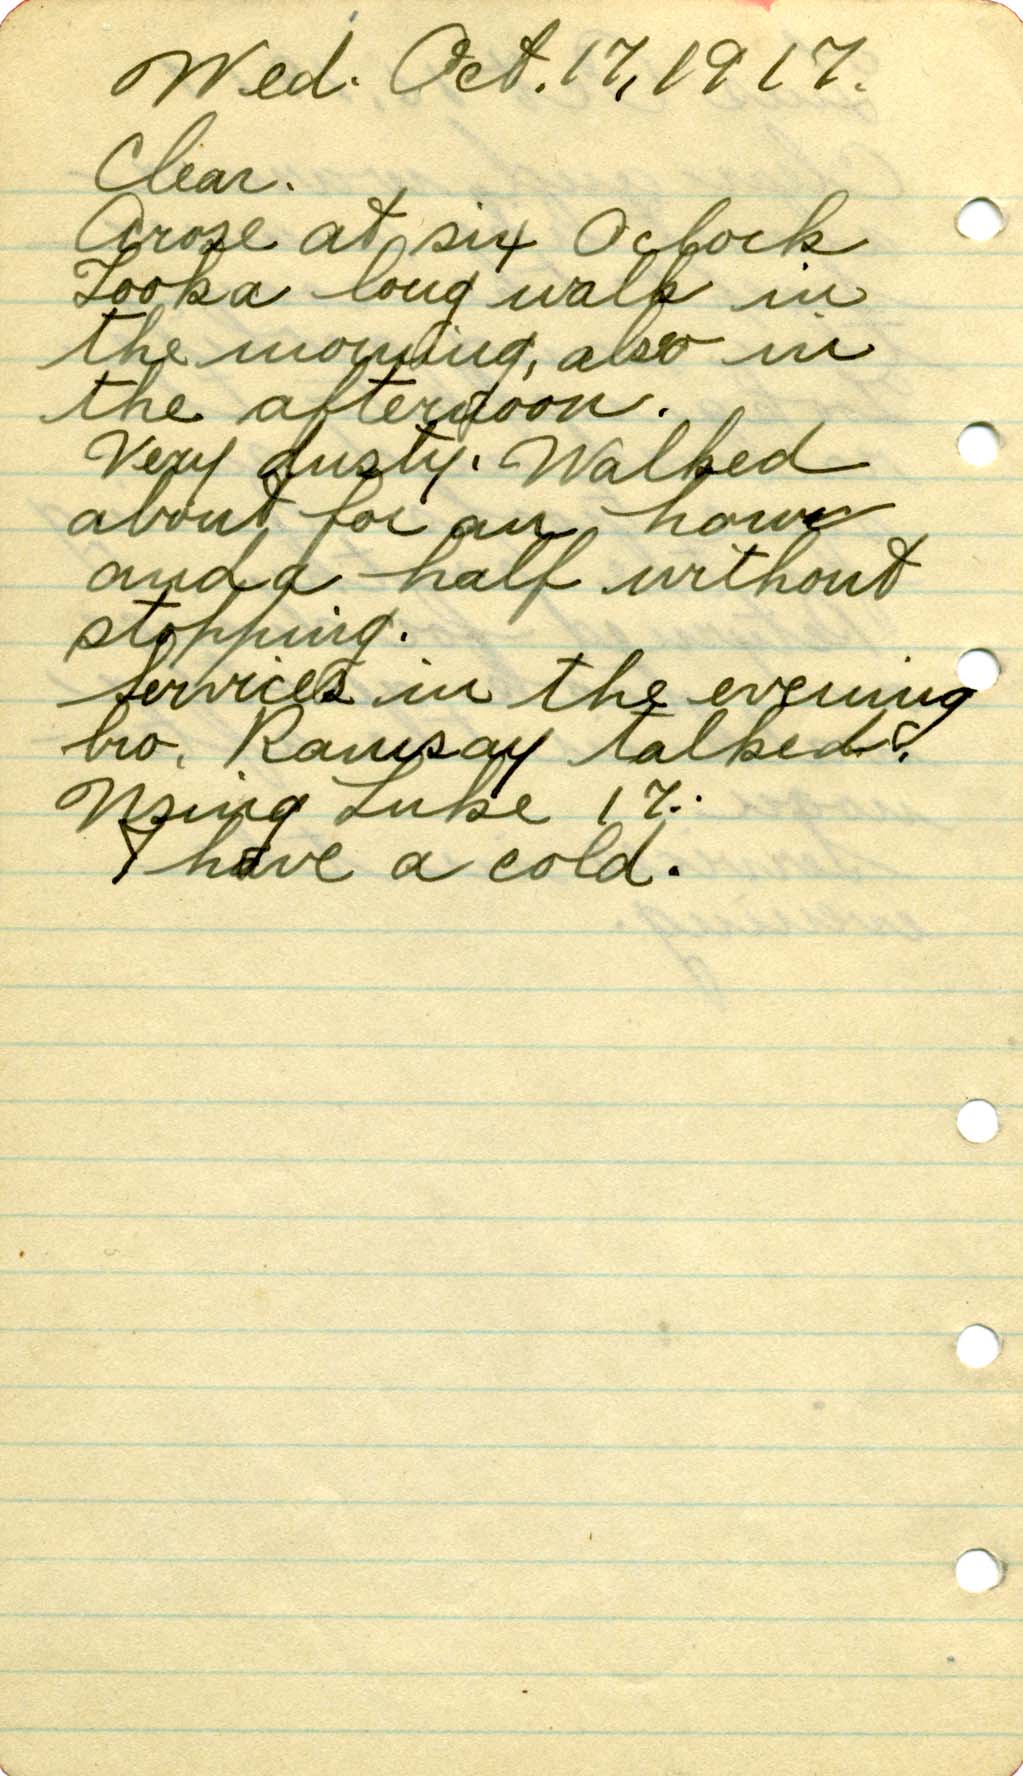 Wed. Oct. 17, 1917.
Clear.
Arose at six Oclock
Took a long walk in
the morning, also in
the afternoon.
Very dusty. Walked
about for an hour
and a half without
stopping.
Services in the evening
bro. Ramsay talked.
Using Luke 17.
I have a cold.